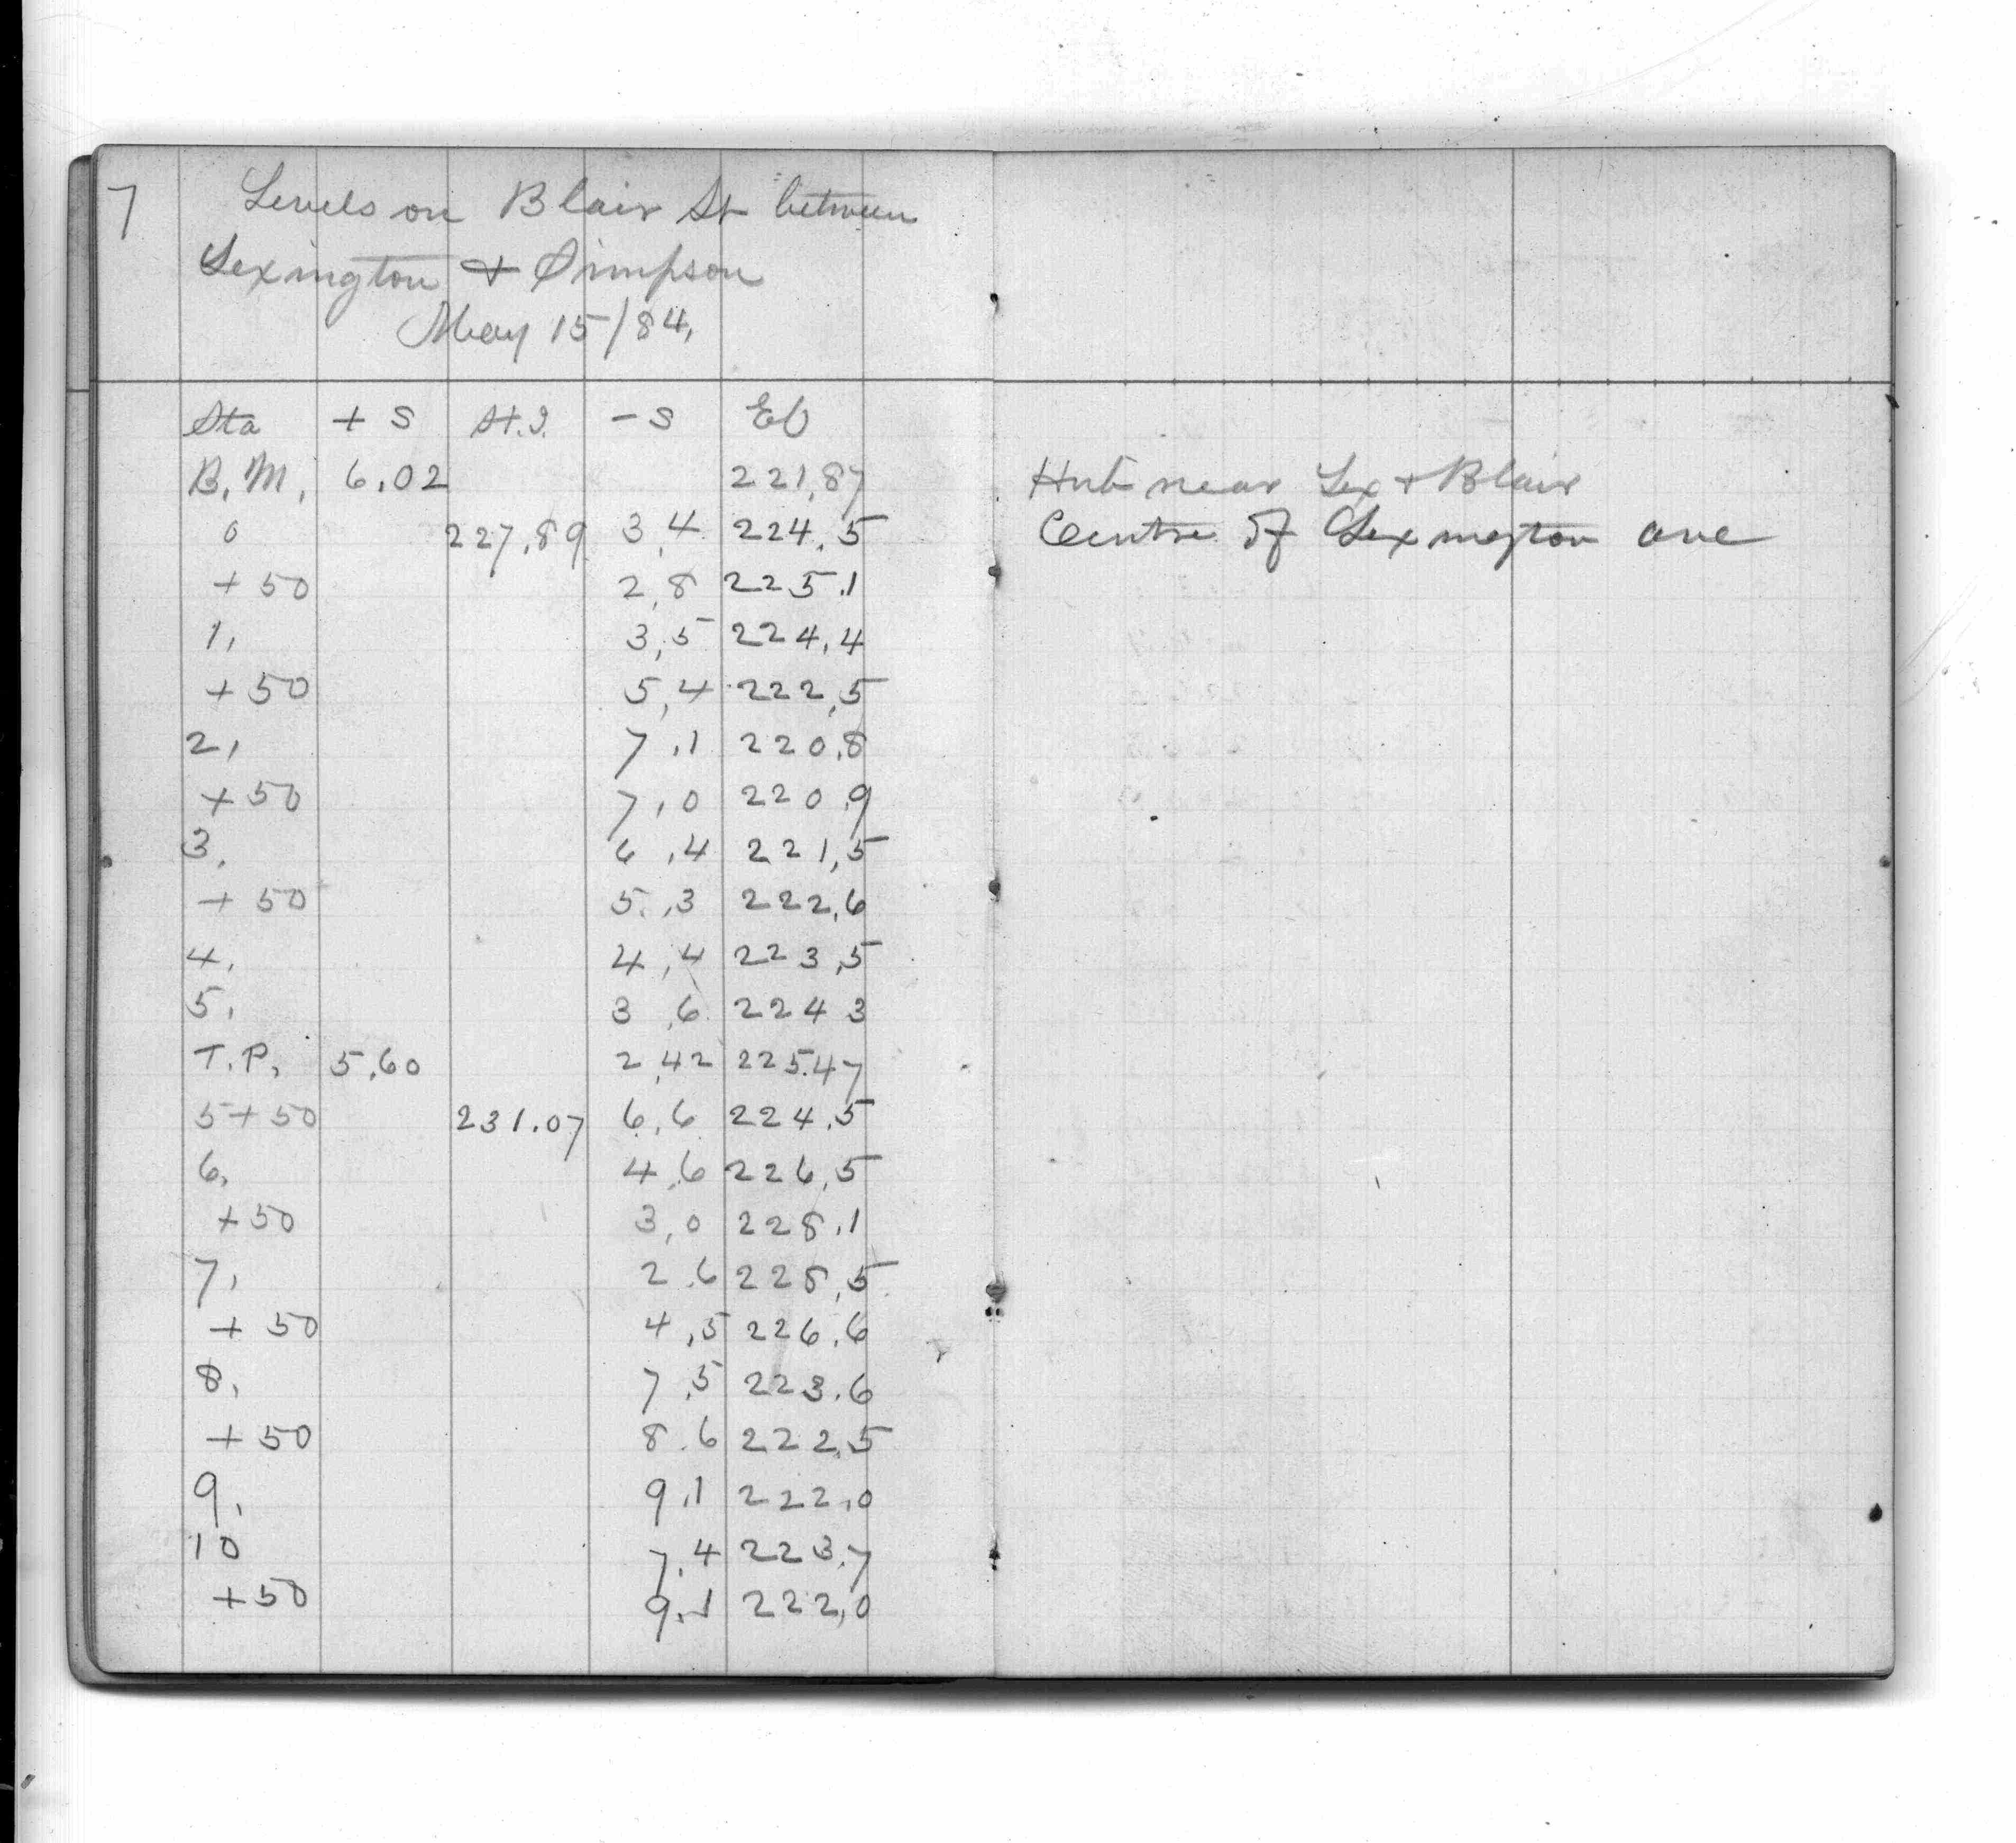 7 Levels on Blair St between
Lexington & Simpson
May 15/84,
Sta + S H.I. - S El
B.M. 6.02 221.87 Hub near Lex & Blair
0 227.89 3.4 224.5 Centre of Lexington ave
+50 2.8 225.1
1, 3.5 224.4
+50 5.4 222.5
2, 7.1 220.8
+50 7.0 220.9
3, 6.4 221.5
+50 5.3 222.6
4, 4.4 223.5
5, 3.6 224 3
T.P. 5.60 2.42 225.47
5+50 231.07 6.6 224.5
6, 4.6 226.5
+50 3.0 228.1
7, 2.6 228.5
+50 4.5 226.6
8, 7.5 223.6
+50 8.6 222.5
9, 9.1 222.0
10 7.4 223.7
+50 9.1 222.0